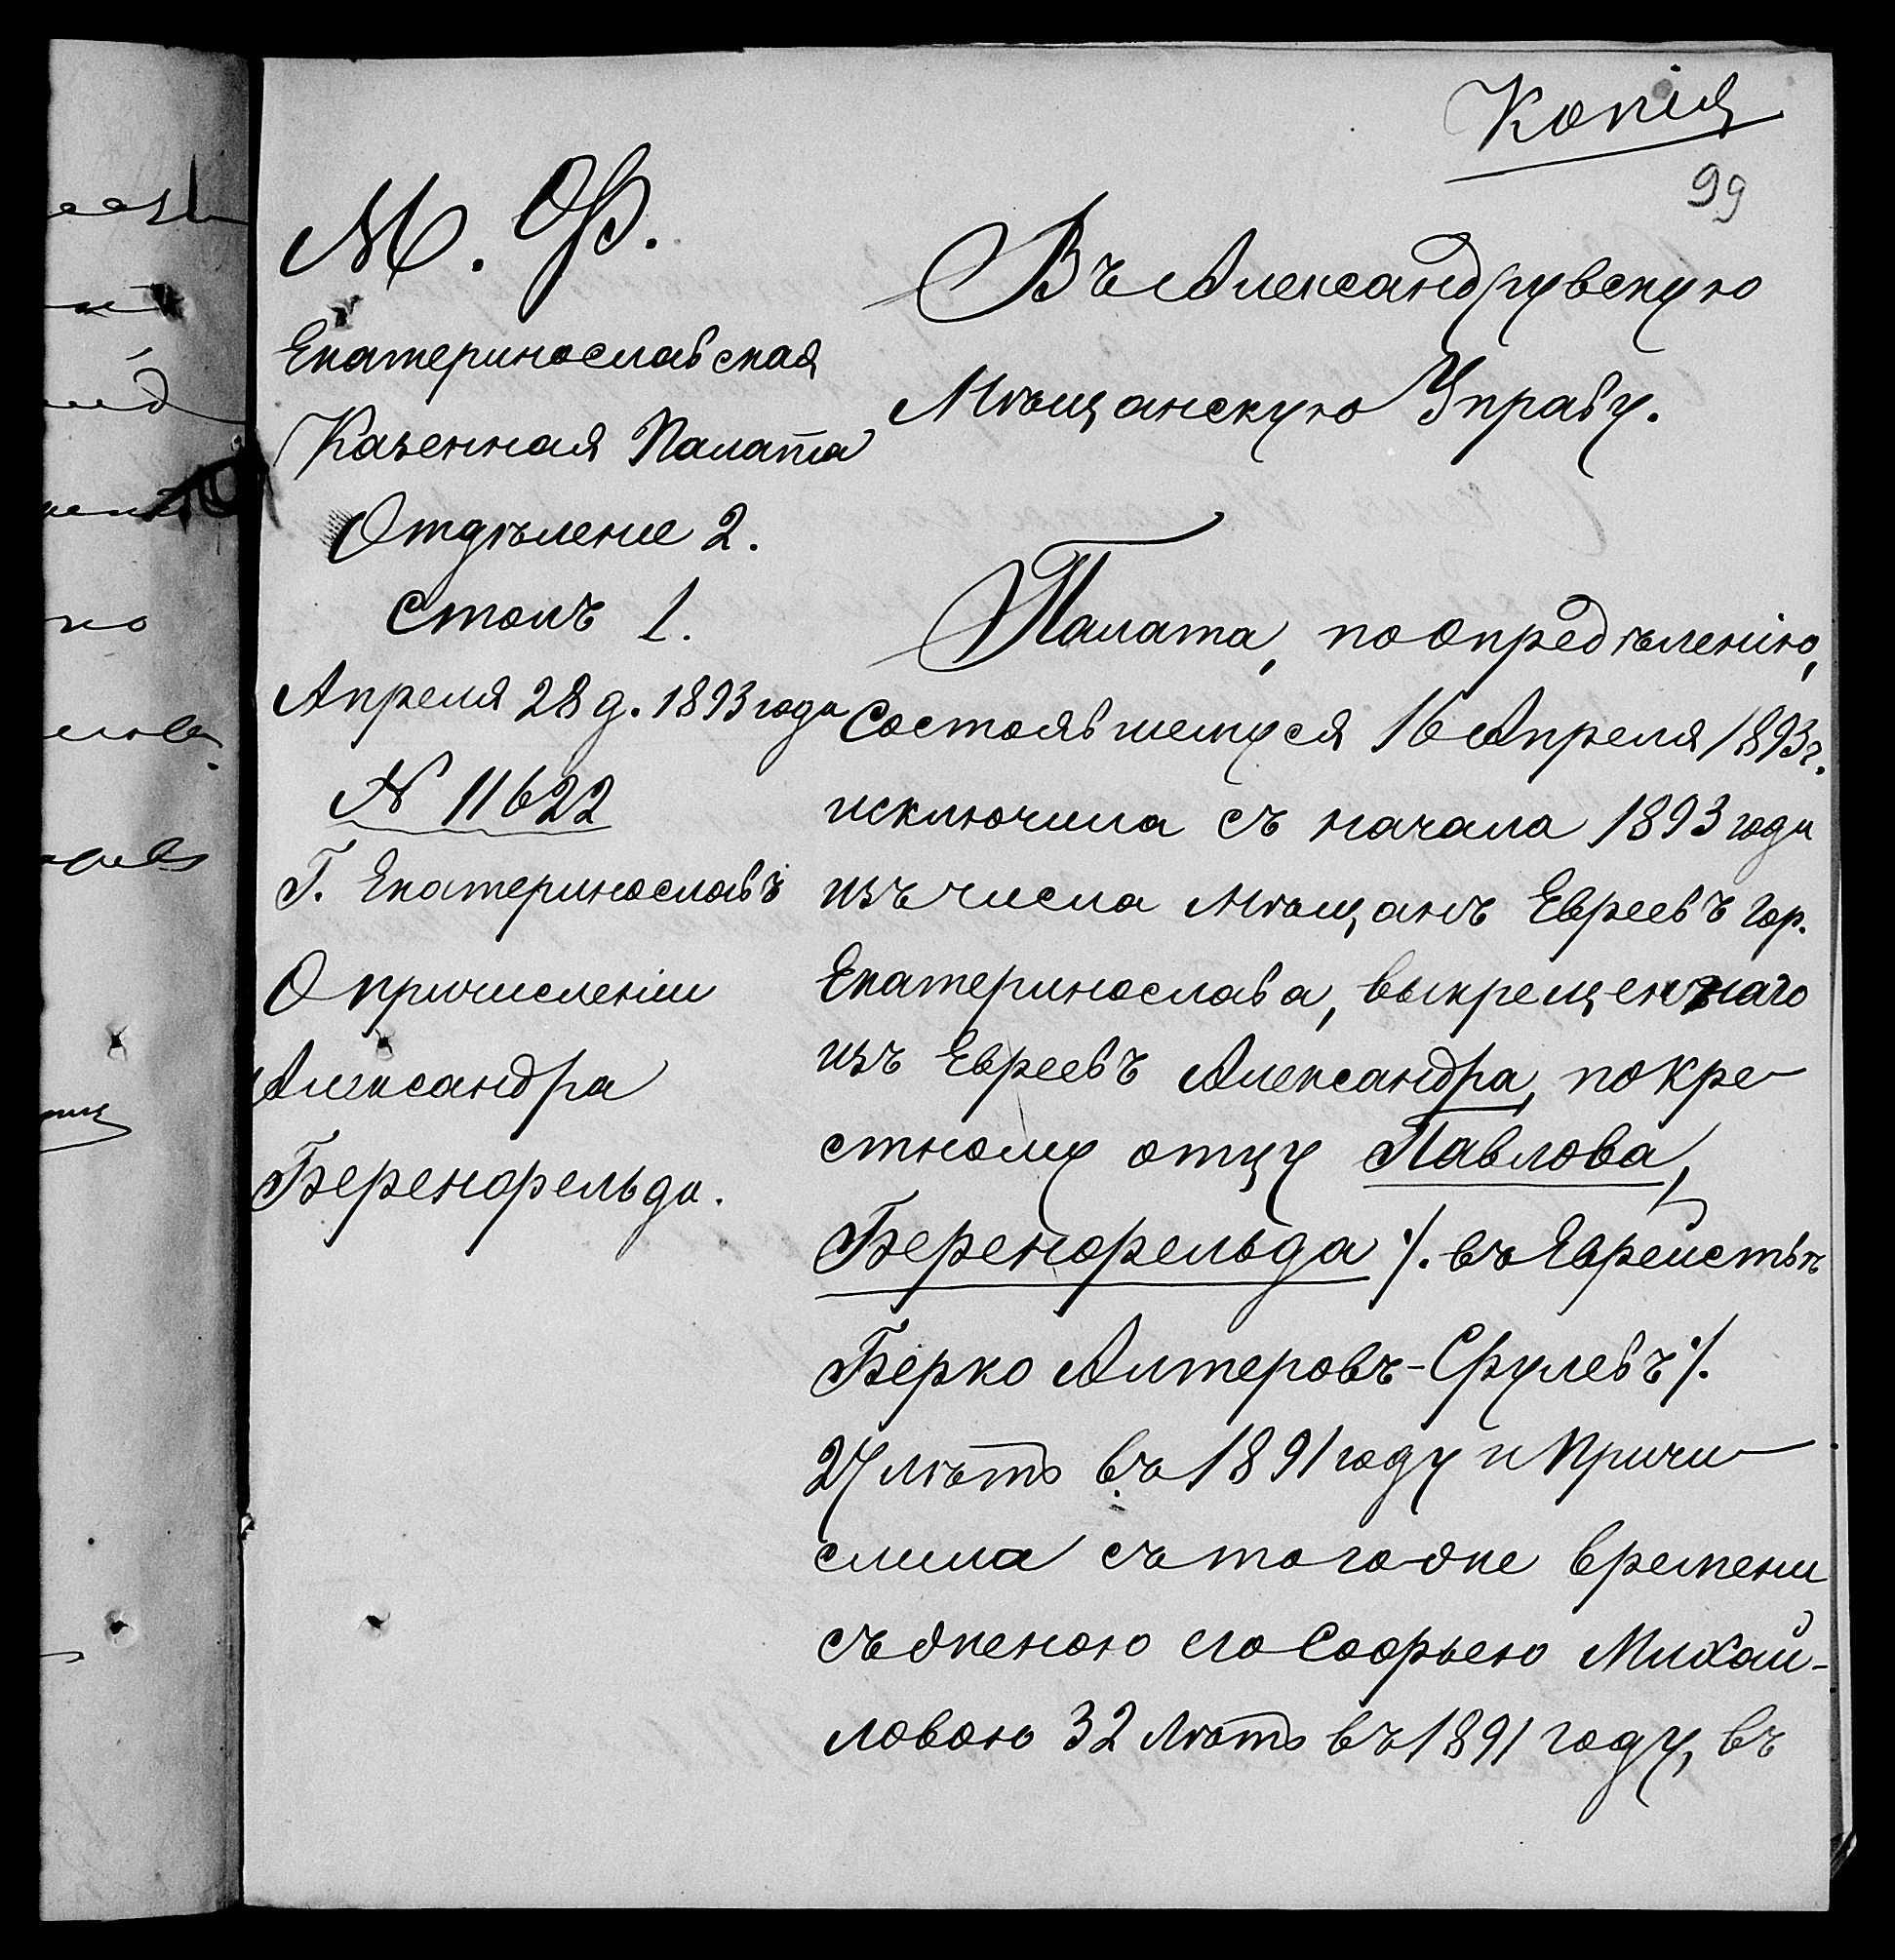 Копія
99
М. Ф.
Екатеринославская
Казенная Палата
Отдѣление 2.
Столъ 1.
Апреля 28 д. 1893 года
№ 11622
Г. Екатеринославъ
О причисленіи
Александра
Беренфельда.
Въ Александровскую
Мѣщанскую Управу.
Палата, по опредѣленію,
состоявшемуся 16 Апреля 1893 г.
исключила съ начала 1893 года
изъ числа мѣщанъ Евреевъ гор.
Екатеринослава, выкрещеннаго
изъ Евреевъ Александра, по кре-
стному отцу Павлова,
Беренфельда /. въ Еврействѣ
Берко Алтеровъ-Срулевъ /.
27 лѣтъ въ 1891 году и причи-
слила съ того-же времени
съ женою его Софьею Михай-
ловою 32 лѣтъ въ 1891 году, въ